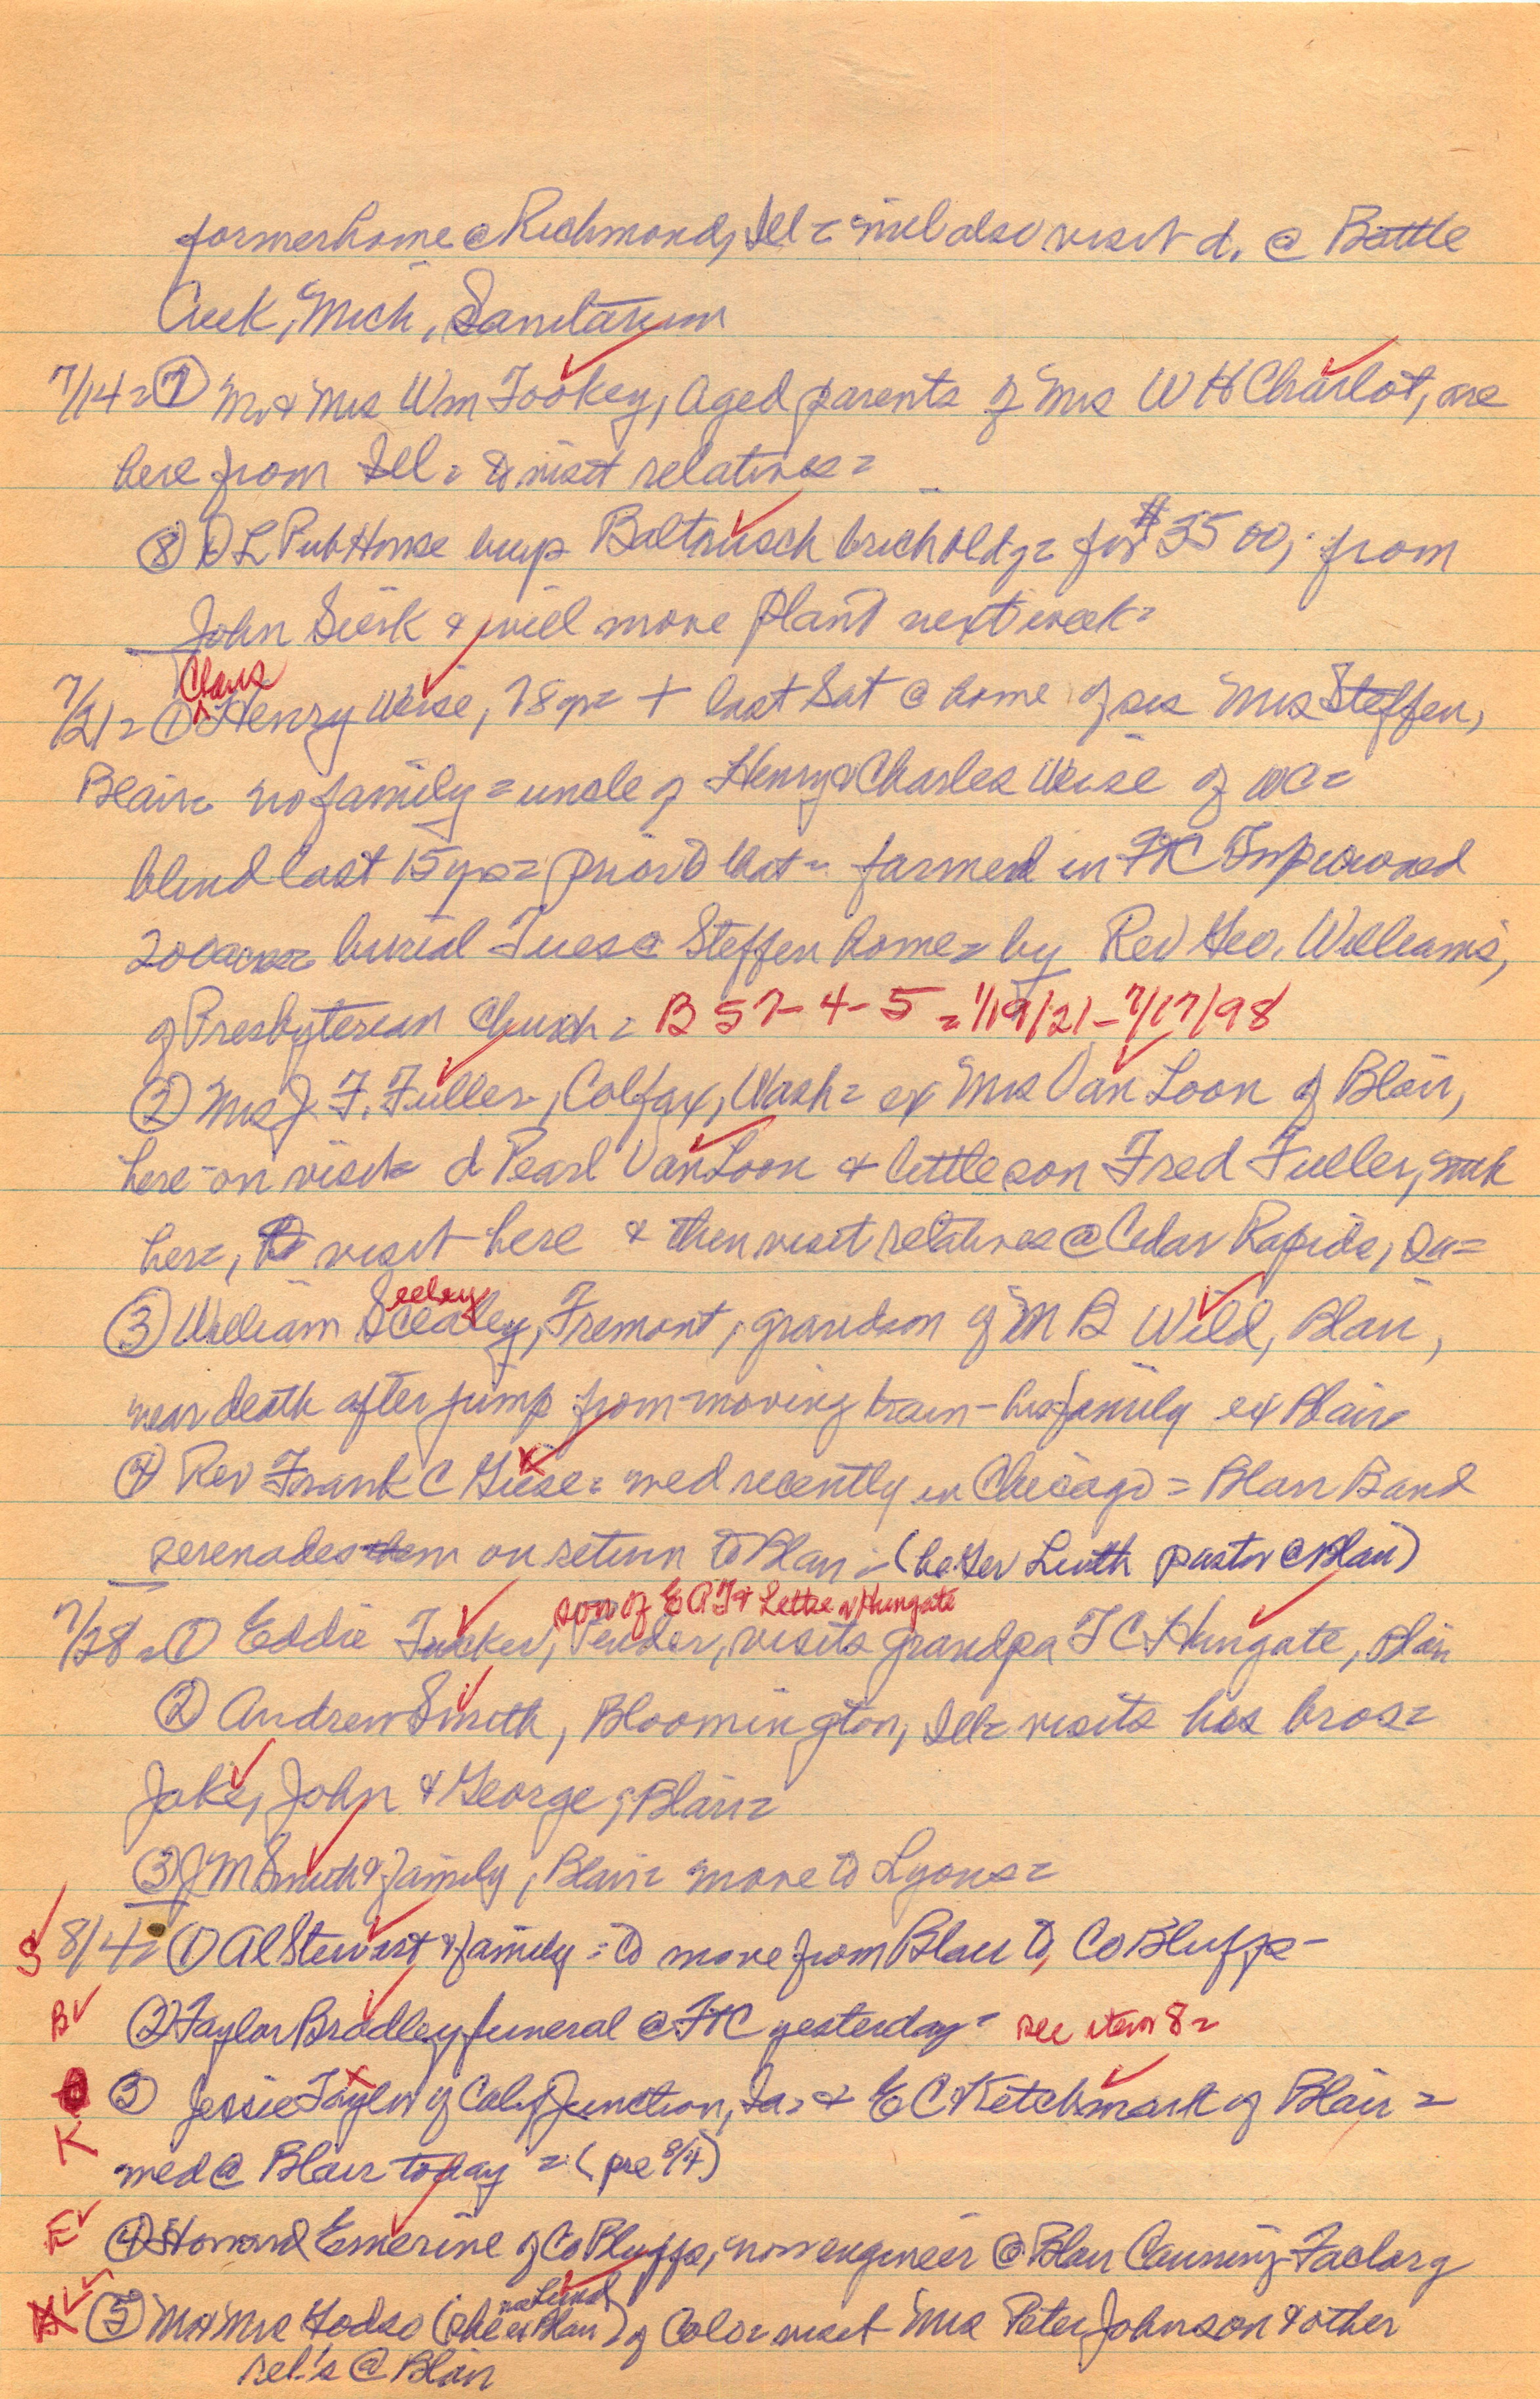 former home @ Richmond, Ill = will also visit d. @ Battle
Creek, Mich, Sanitarium
7/14 = ⑦ Mr & Mrs Wm Tookey, aged parents of Mrs W H Charlot, are
here from Ill = to visit relatives =
⑧ D L Pub House buys Baltrusch brick bldg = for $3500, from
John Sierk & will move plant next week =
Claus
7/21 = ① ^ Henry Weise, 78 yr = + last Sat @ home of sis Mrs Steffen,
Blair = no family = uncle of Henry & Charles Weise of WC =
blind last 15 yrs = prior to that = farmed in FtC Improved
200 acres = burial Tues @ Steffen home = by Rev Geo. Williams,
of Presbyterian Church = B 57-4-5 = 1/19/21 - 7/17/98
② Mrs J. F. Fuller, Colfax, Wash = ex Mrs Van Loon of Blair,
here on visit = d Pearl Van Loon & little son Fred Fuller, with
her =, to visit here & then visit relatives @ Cedar Rapids, Ia =
eeley
③ William Sceadley, Fremont, grandson of M B Wild, Blair,
near death after jump from moving train - his family ex Blair =
④ Rev Frank C Giese = wed recently in Chicago = Blair Band
serenades them on return to Blair = (he Ger Luth pastor @ Blair)
son of E A T & Lettie Hungate
7/28 = ① Eddie Tucker, Pender, visits grandpa T C Hungate, Blair
② Andrew Smith, Bloomington, Ill = visits his bros =
Jake, John & George, Blair =
③ J M Smith & family, Blair = move to Lyons =
S 8/4 = ① Al Stewart & family = to move from Blair to Co Bluffs -
B ② Taylor Bradley funeral @ FtC yesterday = see item 8 =
K ③ Jessie Taylor of Calif Junction, Ia = & E C Ketchmark of Blair =
wed @ Blair today = (pre 8/4)
E ④ Howard Emerine of Co Bluffs, now engineer @ Blair Canning Factory
nee Lund
H ⑤ Mr & Mrs Hodso (she ex Blair) of Colo = visit Mrs Peter Johnson & other
rel's @ Blair